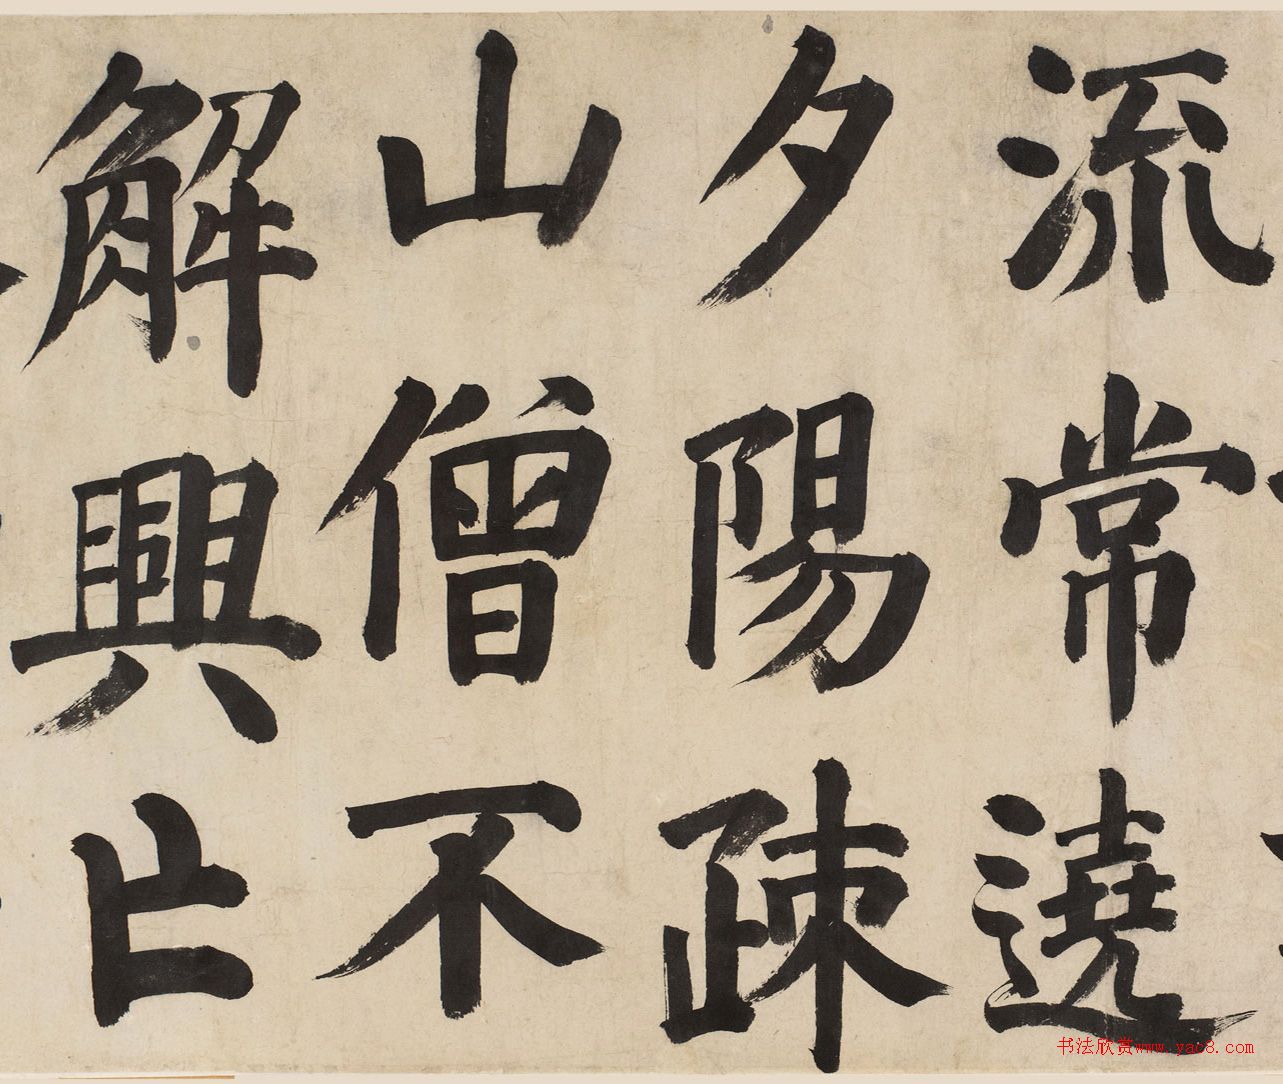 流常遶
夕陽疎
山僧不
解興亡
书法欣赏www.yac8.com